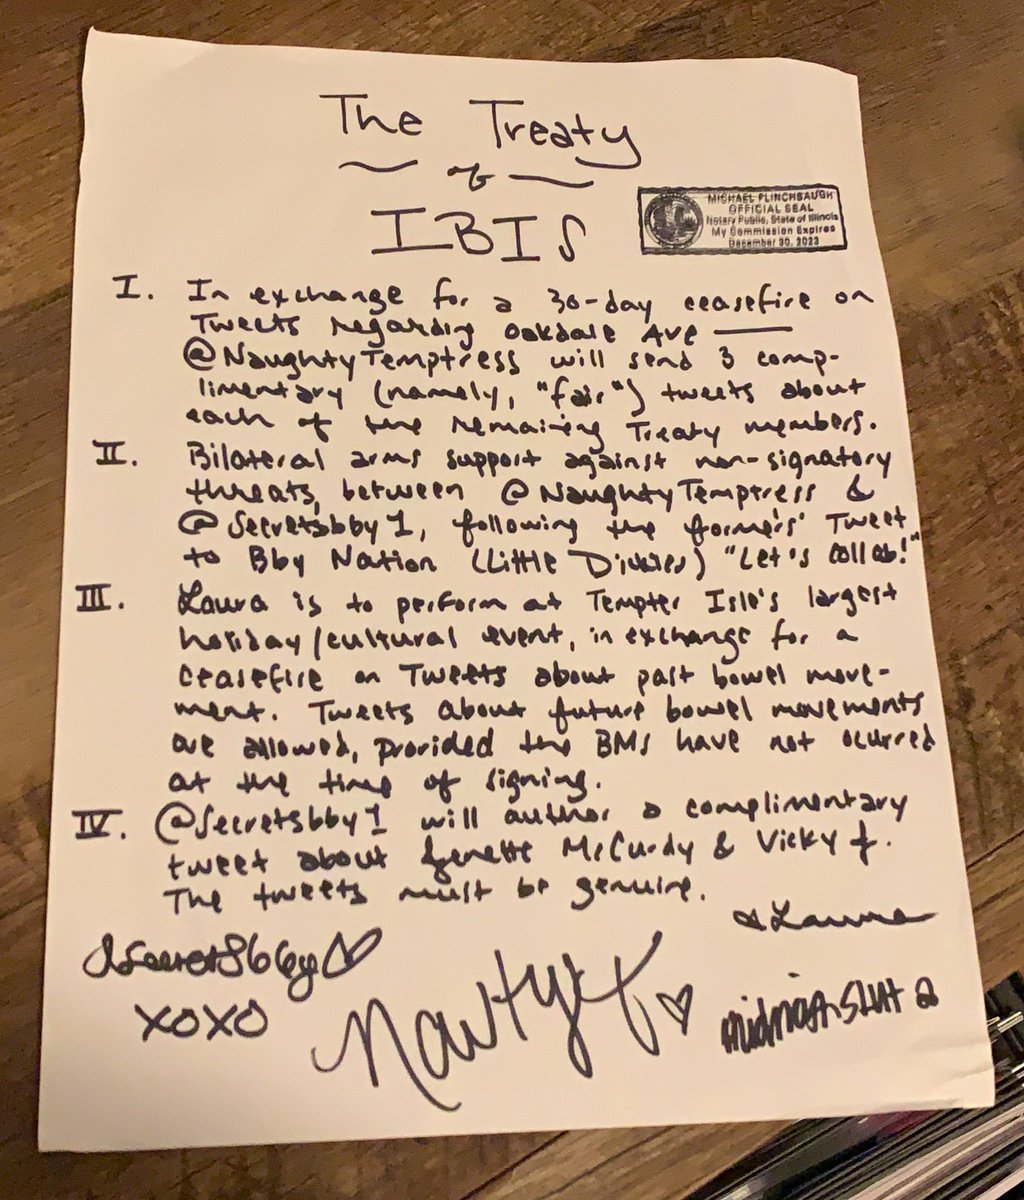 The Treaty
of
IBIS
MICHAEL FLINCHBAUGH
OFFICIAL SEAL
Notary Public, State of Illinois
My Commission Expires
December 30, 2023
I. In exchange for a 30-day ceasefire on
Tweets regarding Oakdale Ave
@NaughtyTemptress will send 3 comp-
limentary (namely, "fair") tweets about
each of the remaining Treaty members.
II. Bilateral arms support against non-signatory
threats, between @NaughtyTemptress &
@Secretsbby1, following the former's' Tweet
to Bby Nation (Little Dickies) "Let's collab!"
III. Laura is to perform at Tempter Isle's largest
holiday/cultural event, in exchange for a
ceasefire on Tweets about past bowel move-
ment. Tweets about future bowel movements
are allowed, provided the BMs have not ocurred
at the time of signing.
IV. @Secretsbby1 will author a complimentary
tweet about Jenette McCurdy & Vicky J.
The tweets must be genuine.
Laura
XOXO
midnight slut 2